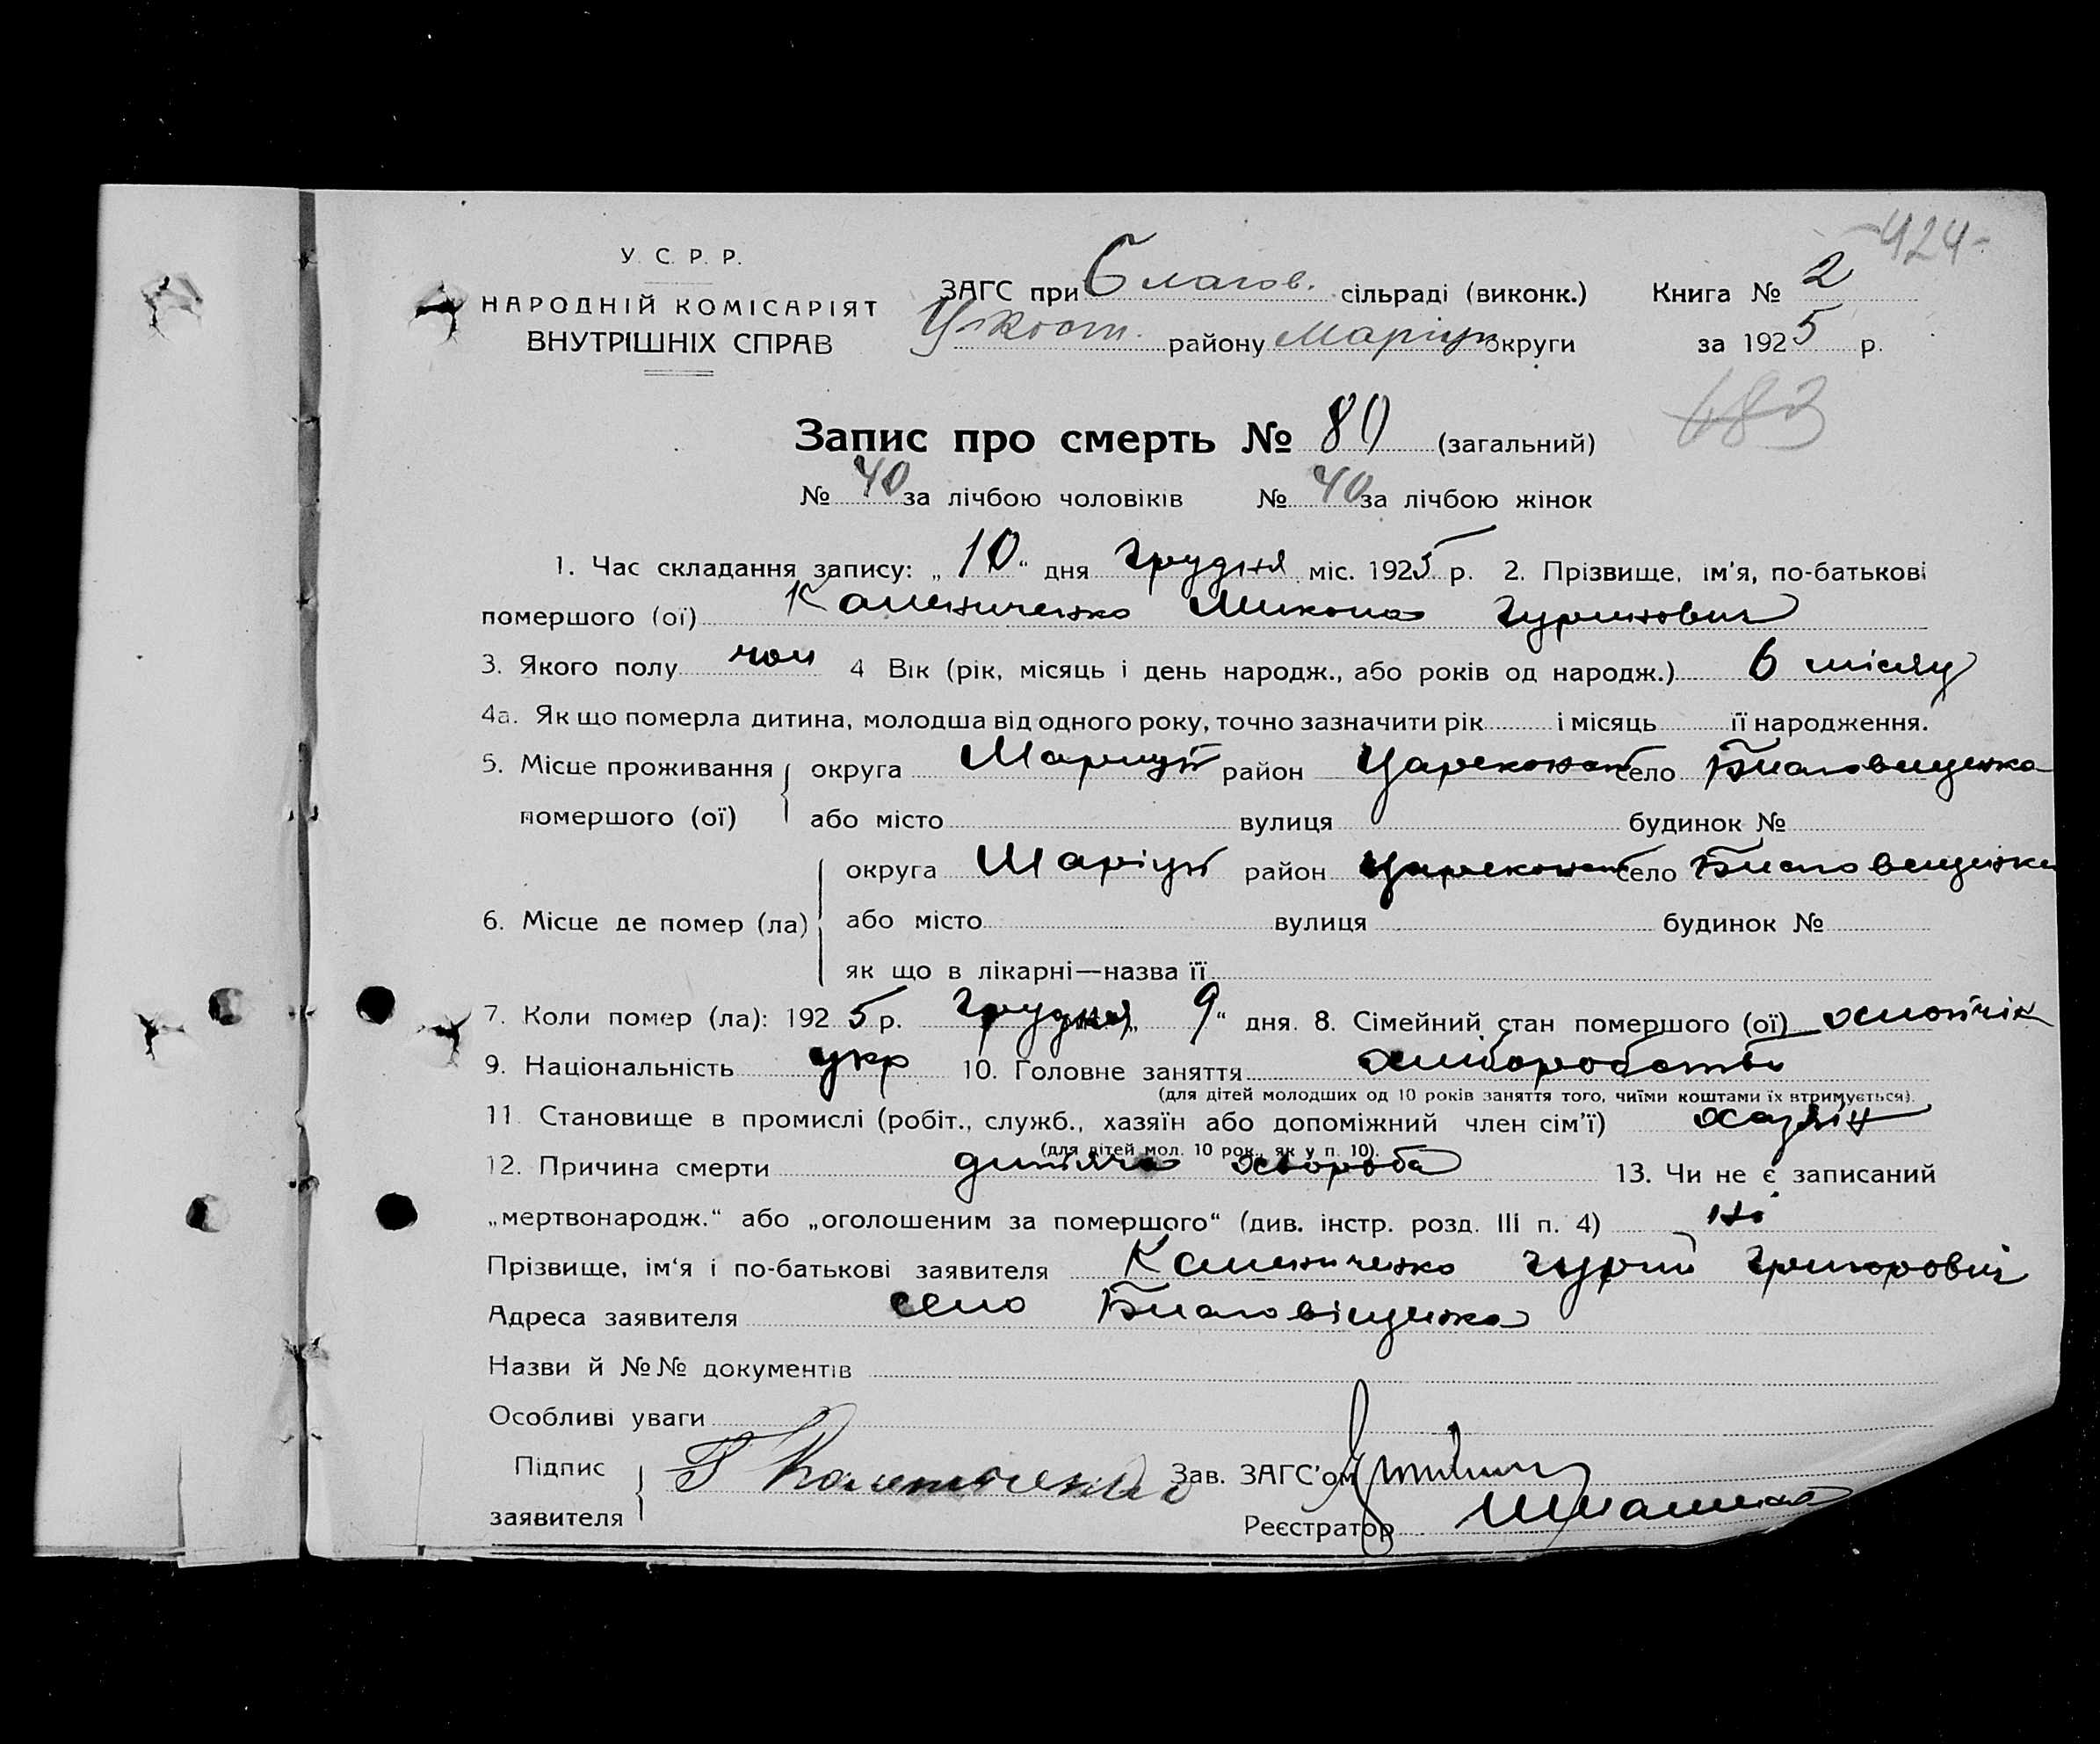 -424-
У. С. Р. Р.
НАРОДНІЙ КОМІСАРІЯТ
ВНУТРІШНІХ СПРАВ
ЗАГС при Благов. сільраді (виконк.)
Книга № 2
району Маріуп округи
за 1925 р.
683
Запис про смерть № 80 (загальний)
№ 40 за лічбою чоловіків № 40 за лічбою жінок
1. Час складання запису: „10“ дня грудня міс. 1925 р. 2. Прізвище, ім'я, по-батькові
помершого (ої) Каленіченко Микола Гуринович
3. Якого полу чол 4 Вік (рік, місяць і день народж., або років од народж.) 6 місяц
4а. Як що померла дитина, молодша від одного року, точно зазначити рік і місяць її народження.
5. Місце проживання помершого (ої) округа Мариуп район Царекокст село Благовищенка
або місто вулиця будинок №
6. Місце де помер (ла) округа Маріуп район Царекокст село Благовещенка
або місто вулиця будинок №
як що в лікарні—назва її
7. Коли помер (ла): 1925 р. грудня „9“ дня. 8. Сімейний стан помершого (ої) хлопчік
9. Національність укр 10. Головне заняття хліборобство
(для дітей молодших од 10 років заняття того, чиїми коштами їх втримується).
11. Становище в промислі (робіт., служб., хазяїн або допоміжний член сім'ї) хазяїн
(для дітей мол. 10 рок., як у п. 10).
12. Причина смерти дитяча хвороба 13. Чи не є записаний
„мертвонародж.“ або „оголошеним за помершого“ (див. інстр. розд. III п. 4) ні
Прізвище, ім'я і по-батькові заявителя Каленіченко Гурій Григорович
Адреса заявителя село Благовіщенка
Назви й №№ документів
Особливі уваги
Підпис заявителя Г Каленіченко
Зав. ЗАГС'ом
Реєстратор